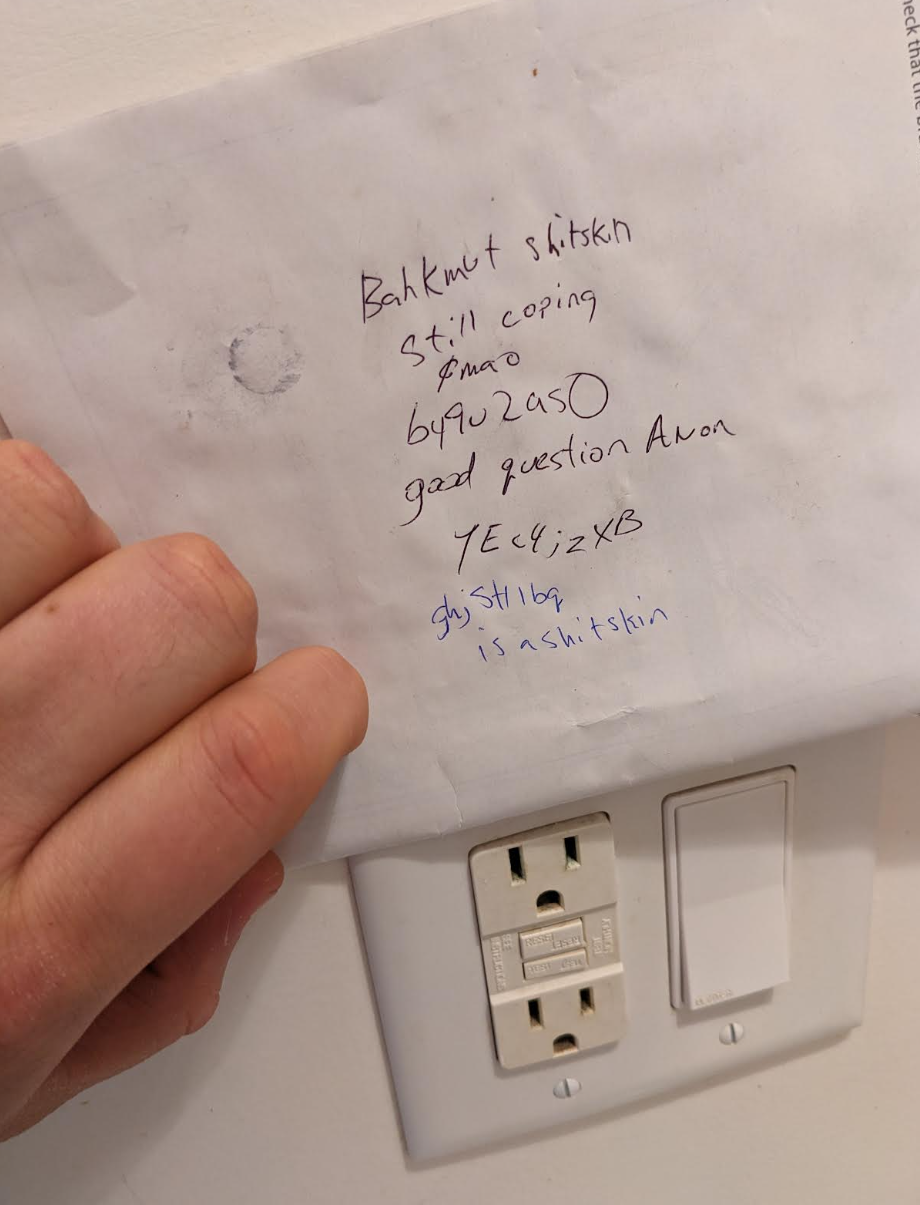 heck that the
Bahkmut shitskin
still coping
¢mao
by9u2as0
good question Anon
YEc4jzXB
ghjStI1bq
is a shitskin
RESET
TEST